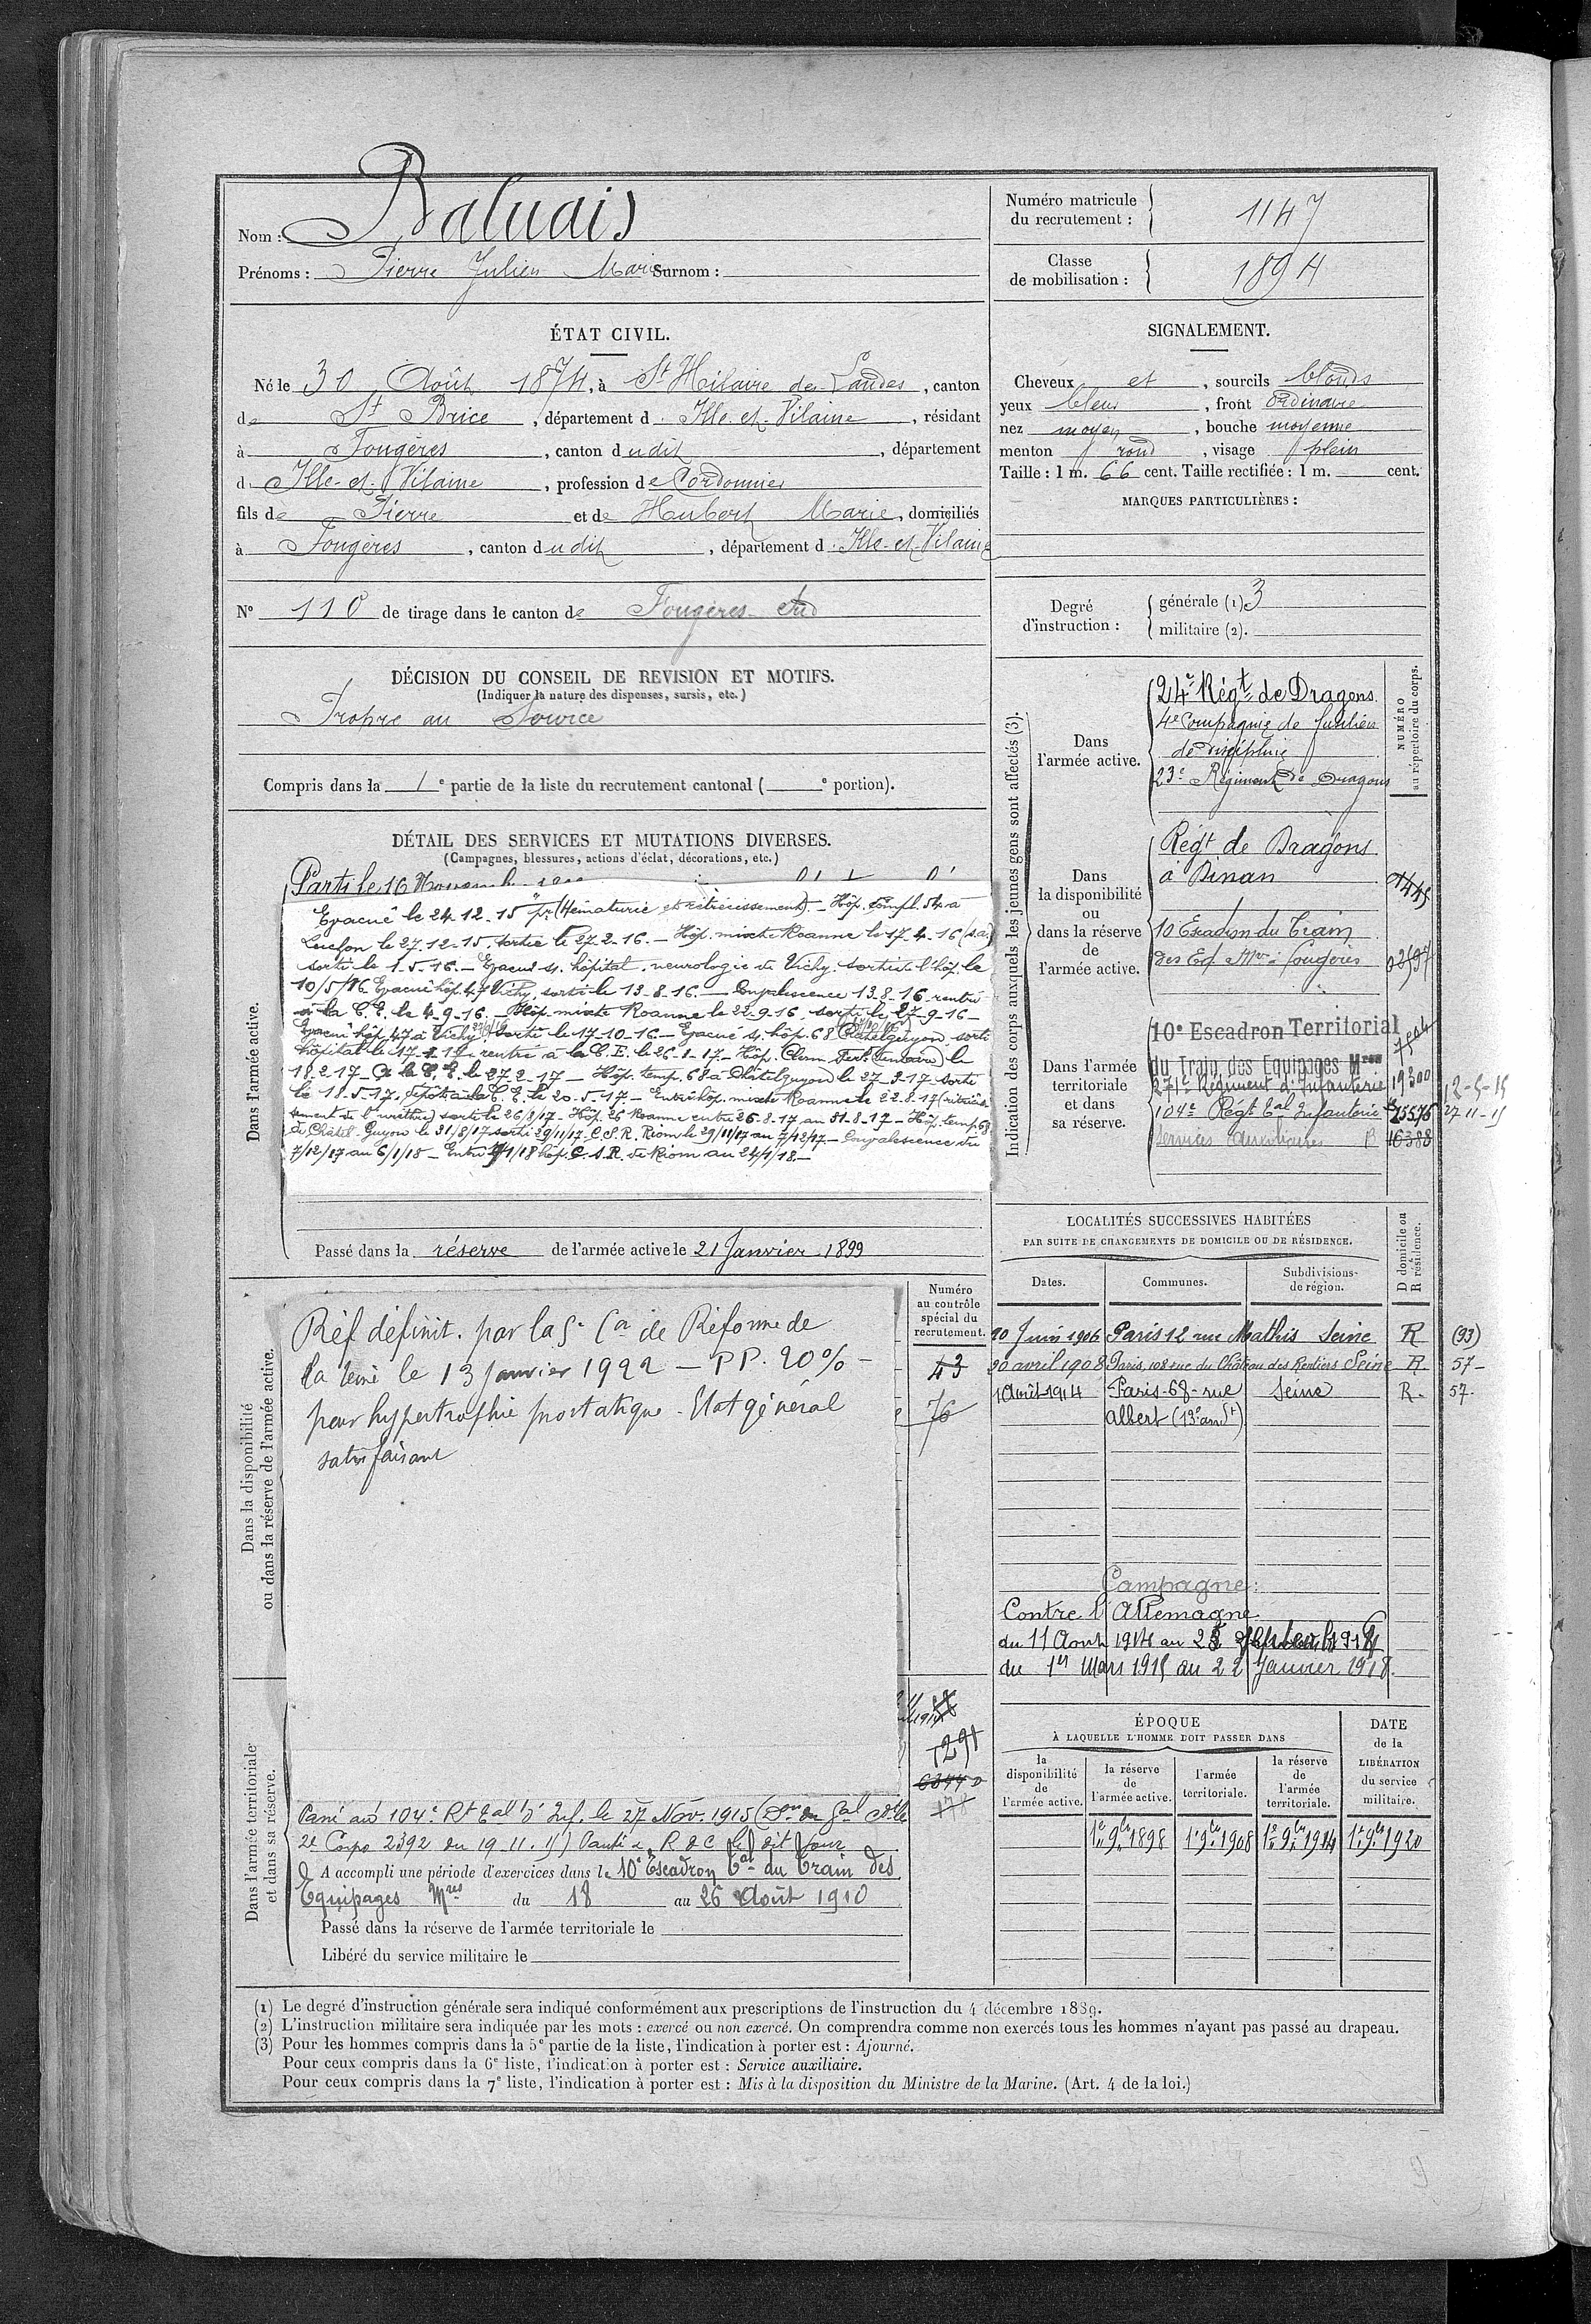 Nom : Baluais
Prénoms : Pierre Julien Marie Surnom :
Numéro matricule du recrutement : 1147
Classe de mobilisation : 1894
ÉTAT CIVIL.
Né le 30 Août 1874, à St Hilaire des Landes, canton
de St Brice, département d Ille-et-Vilaine, résidant
à Fougères, canton dudit, département
d Ille-et-Vilaine, profession de Cordonnier
fils de Pierre et de Hubert Marie, domiciliés
à Fougères, canton dudit, département d Ille-et-Vilaine
N° 110 de tirage dans le canton de Fougères Sud
DÉCISION DU CONSEIL DE REVISION ET MOTIFS.
(Indiquer la nature des dispenses, sursis, etc.)
Propre au Service
Compris dans la 1e partie de la liste du recrutement cantonal ( e portion).
SIGNALEMENT.
Cheveux et, sourcils blonds
yeux bleus, front ordinaire
nez moyen, bouche moyenne
menton rond, visage plein
Taille : 1 m. 66 cent. Taille rectifiée : 1 m. cent.
MARQUES PARTICULIÈRES :
Degré d'instruction :
générale (1) 3
militaire (2).
DÉTAIL DES SERVICES ET MUTATIONS DIVERSES.
(Campagnes, blessures, actions d'éclat, décorations, etc.)
Dans l'armée active.
Parti le 16 Novemb
Evacué le 24.12.15 pr (Hématurie et rétrécissement). – Hôp. Compl. 54 à
Luçon le 27.12.15. sortie le 27.2.16. – Hôp. mixte Roanne le 17.4.16
sorti le 1.5.16. – Evacué s. hôpital neurologie de Vichy. sorti de l'hôp. le
10/5/16 Evacué hôp. 47 Vichy, sorti le 13-8-16. – Convalescence 13-8-16 rentré
à la C.E. le 4-9-16. – Hôp. mixte Roanne le 22-9-16 sorti le 27-9-16 –
Evacué hôp. 47 à Vichy sorti le 17-10-16 – Evacué s. hôp. 68 Chatelguyon sorti
hôpital le 17-1-17 rentré à la C.E. le 26-1-17 – Hôp. Clerm. Ferr. le
18-2-17 – à la C.E. le 27-2-17 – Hôp. temp. 68 à Châtelguyon le 27-3-17 sorti
le 18-5-17. Dépôt à la C.E. le 20-5-17 – Entré hôp. mixte Roanne le 22-8-17 (rétrécis-
sement de l'urèthre) sorti le 26/8/17 – Hôp. 26 Roanne entré 26-8-17 au 31-8-17 – Hôp. temp. 68
de Châtel-Guyon le 31/8/17 sorti 29/11/17. C.S.R. Riom le 29/11/17 au 7/12/17 – Convalescence du
7/12/17 au 6/1/18 – Entré /1/18 hôp. C.S.R. de Riom au 24/1/18. –
Passé dans la réserve de l'armée active le 21 Janvier 1899
Indication des corps auxquels les jeunes gens sont affectés (3).
NUMÉRO au répertoire du corps.
Dans l'armée active.
24e Régt de Dragons
4e Compagnie de fusiliers
de discipline
23e Régiment de Dragons
Dans la disponibilité ou dans la réserve de l'armée active.
Régt de Dragons
à Dinan
10 Escadron du Train
des Eq. Mres à Fougères
Dans l'armée territoriale et dans sa réserve.
10e Escadron Territorial
du Train des Equipages Mres
271e Régiment d'Infanterie 19300 12-5-15
104e Régt Eal Infanterie 13576 27-11-15
Services Auxiliaires 16388
LOCALITÉS SUCCESSIVES HABITÉES
PAR SUITE DE CHANGEMENTS DE DOMICILE OU DE RÉSIDENCE.
Dates. Communes. Subdivisions de région. D domicile ou R résidence.
10 Juin 1906 Paris 12 rue Mathis Seine R (93)
20 avril 1908 Paris, 108 rue du Château des Rentiers Seine R 57 –
1 Août 1914 Paris-68-rue Seine R. 57.
Albert (13e arrdt)
Campagne :
Contre l'Allemagne
du 11 Août 1914 au 28 septembre 1914
du 1er Mars 1915 au 22 Janvier 1918.
Dans la disponibilité ou dans la réserve de l'armée active.
Numéro au contrôle spécial du recrutement.
43
76
Réf. définit. par la 5e Con de Réforme de
la Seine le 13 Janvier 1922 – P.P. 20% –
pour hypertrophie prostatique. Etat général
satisfaisant
Dans l'armée territoriale et dans sa réserve.
1291
Passé au 104e Rt Eal d'Inf. le 27 Nov. 1915
2e Corps 2392 du 19.11.15) le dit jour
A accompli une période d'exercices dans le 10e Escadron Eal du Train des
Equipages Mres du 18 au 26 Août 1910
Passé dans la réserve de l'armée territoriale le
Libéré du service militaire le
ÉPOQUE
À LAQUELLE L'HOMME DOIT PASSER DANS
la disponibilité de l'armée active. la réserve de l'armée active. l'armée territoriale. la réserve de l'armée territoriale.
DATE de la LIBÉRATION du service militaire.
1er 9bre 1898 1er 9bre 1908 1er 9bre 1914 1er 9bre 1920
(1) Le degré d'instruction générale sera indiqué conformément aux prescriptions de l'instruction du 4 décembre 1889.
(2) L'instruction militaire sera indiquée par les mots : exercé ou non exercé. On comprendra comme non exercés tous les hommes n'ayant pas passé au drapeau.
(3) Pour les hommes compris dans la 5e partie de la liste, l'indication à porter est : Ajourné.
Pour ceux compris dans la 6e liste, l'indication à porter est : Service auxiliaire.
Pour ceux compris dans la 7e liste, l'indication à porter est : Mis à la disposition du Ministre de la Marine. (Art. 4 de la loi.)